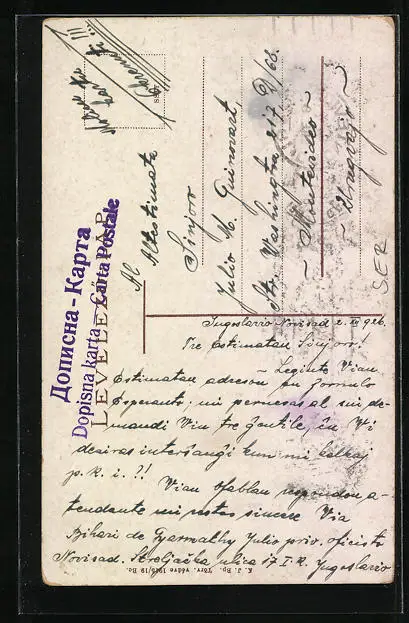 Дописна-Карта
Dopisna karta - Carta Postale
LEVELEZŐLAP
Al
Altestimata
Sinjoro
Julio M. Guinovart,
Str. Washington 217 (60.
~ Montevideo ~
~ Urugvajo ~
SER
Jugoslavio Novisad 2. 926.
Tre estimatan Sinjoro!
- Leginte Vian
Estimatan adreson en Jornulo
Esperanto, mi permesas al mi de-
mandi Vin tre ĝentile, ĉu Vi
deziras interŝanĝi kun mi kelkaj
p. k. i. ?!
Vian afablan respondon a-
tendante mi restas sincere Via
Bihari de Gyarmathy Julio priv. oficisto
Novisad. Streljačka ulica 17 I. R. Jugoslavio
K. J. Bp. Törv. védve 1918/19